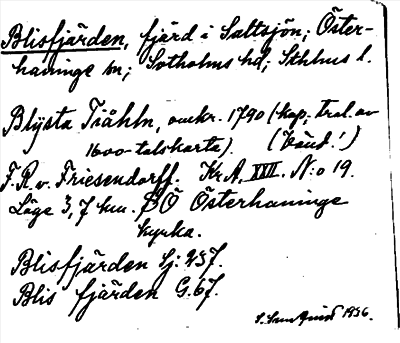 Blisfjärden, fjärd i Saltsjön; Öster-
haninge sn; Sotholms hd; Sthlms l.
Blijsta Fiähln, omkr. 1790 (kop; trol. av
1600-talskarta). (Eänd!)
F.R. v. Friesendorff. Kr.A. XXII. N:o 19.
Läge 3,7 km. SÖ Österhaninge
kyrka.
Blisfjärden Sj: 237.
Blis fjärden G. 67.
1936.